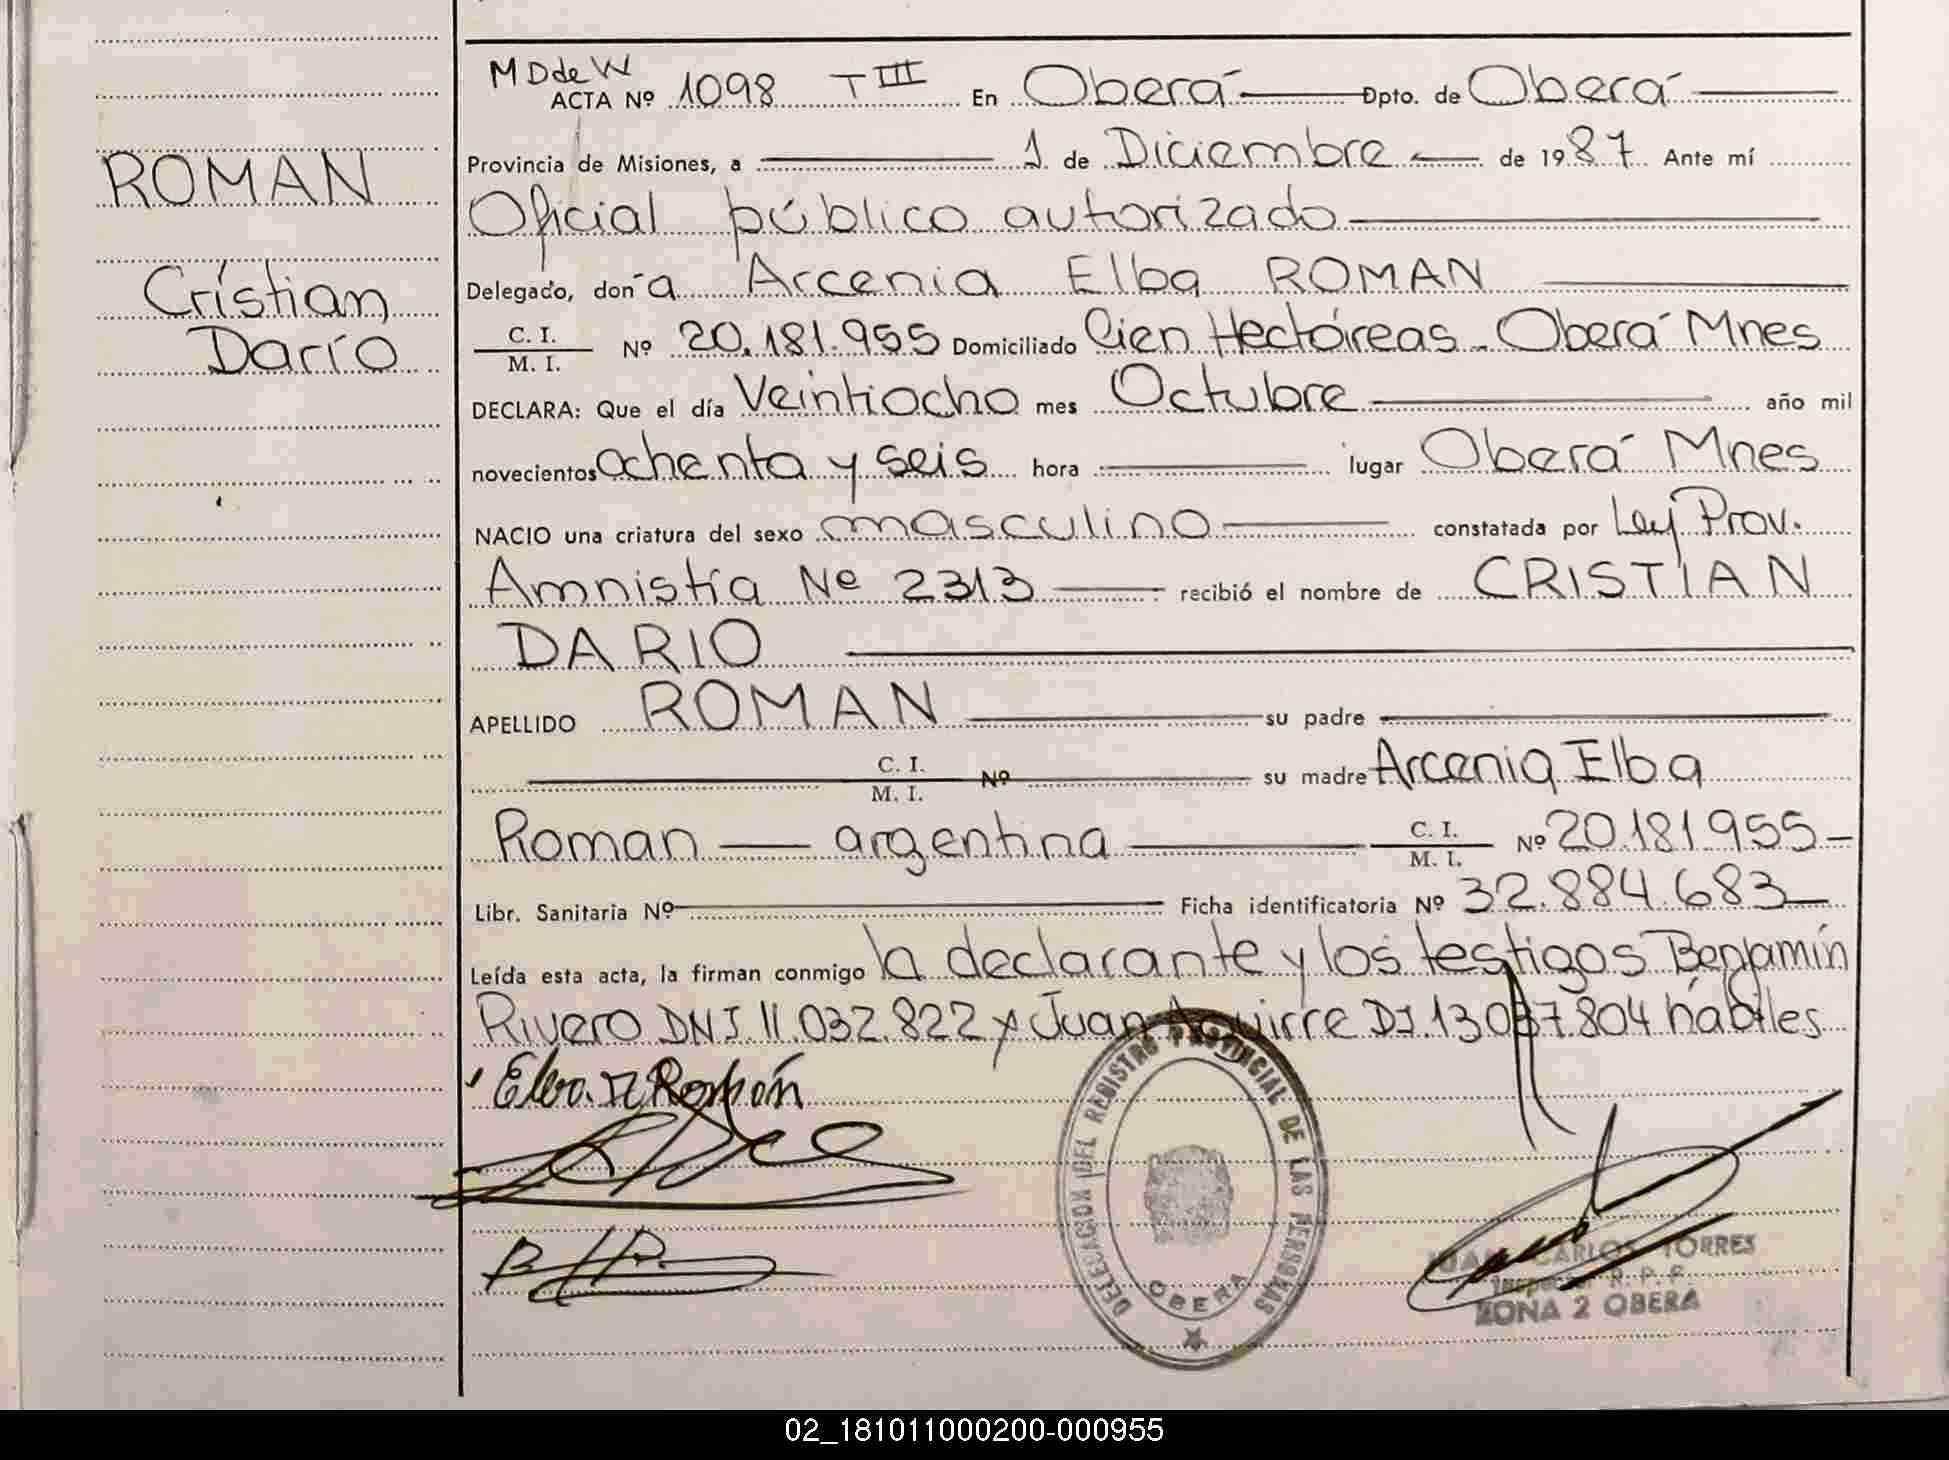 ROMAN
Cristian
Darío
MD de W
ACTA Nº 1098 T III En Oberá Dpto. de Oberá
Provincia de Misiones, a 1 de Diciembre de 1987 Ante mí
Oficial público autorizado
Delegado, don a Arcenia Elba ROMAN
C. I.
M. I. Nº 20.181.955 Domiciliado Cien Hectáreas - Oberá Mnes
DECLARA: Que el día Veintiocho mes Octubre año mil
novecientos ochenta y seis hora lugar Oberá Mnes
NACIO una criatura del sexo masculino constatada por Ley Prov.
Amnistía Nº 2313 recibió el nombre de CRISTIAN
DARIO
APELLIDO ROMAN su padre
C. I.
M. I. Nº su madre Arcenia Elba
Roman argentina C. I.
M. I. Nº 20.181.955
Libr. Sanitaria Nº Ficha identificatoria Nº 32.884.683
Leída esta acta, la firman conmigo la declarante y los testigos Benjamín
Rivero DNI 11.032.822 y Juan Aguirre DI. 13.037.804 hábiles
Román
DELEGACION DEL REGISTRO PROVINCIAL DE LAS PERSONAS
OBERA
JUAN CARLOS TORRES
Inspector R. P. P.
ZONA 2 OBERA
02_181011000200-000955